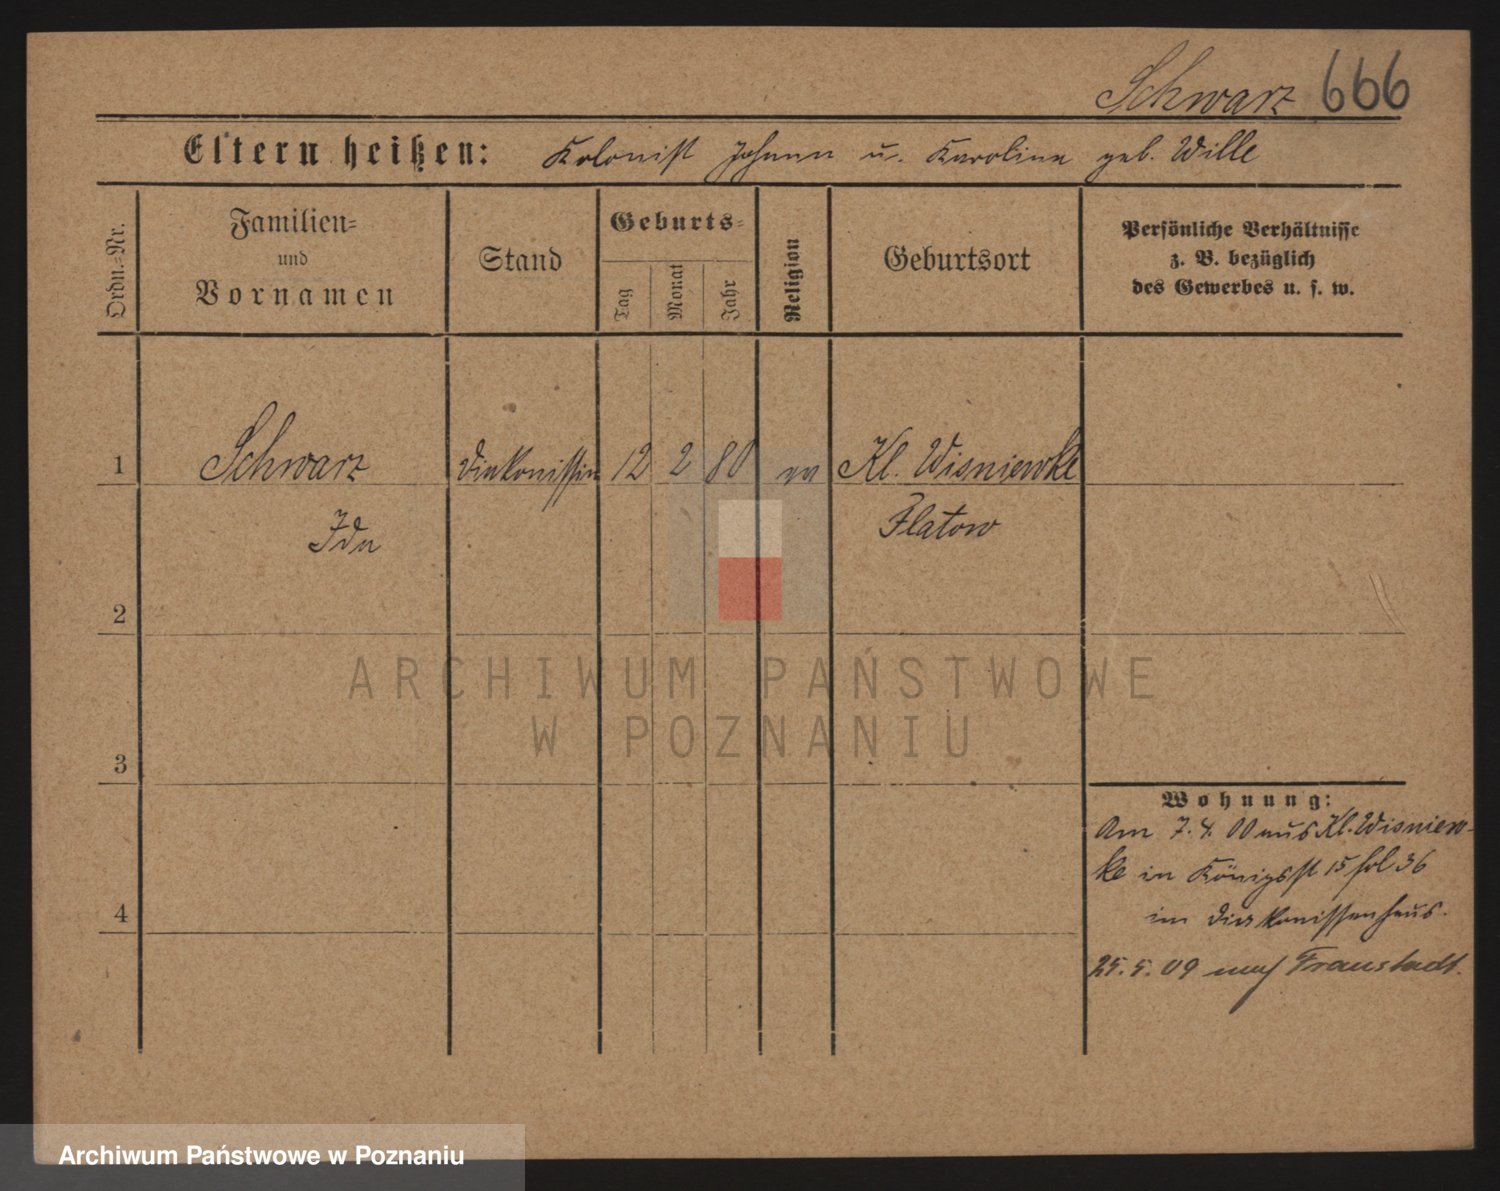 Schwarz 666
Eltern heißen: Kolonist Johann u. Karoline geb. Wille
Ordn.-Nr.
Familien-
und
Vornamen
Stand
Geburts-
Tag
Monat
Jahr
Religion
Geburtsort
Persönliche Verhältnisse
z. B. bezüglich
des Gewerbes u. s. w.
1 Schwarz Diakonissin 12 2 80 ev Kl. Wisniewke
Ida Flatow
2
ARCHIWUM PAŃSTWOWE
W POZNANIU
3
Wohnung:
Am 7. 4. 00 aus Kl. Wisniew-
ke in Königsst 15 fol 36
4
im Diakonissenhaus.
25. 5. 09 nach Fraustadt.
Archiwum Państwowe w Poznaniu